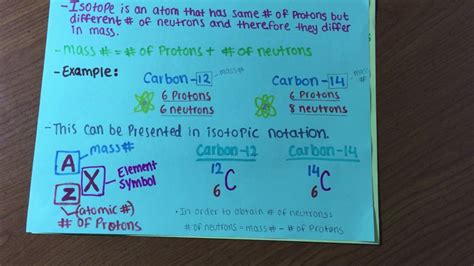 - Isotope is an atom that has same # of Protons but
different # of neutrons and therefore they differ
in mass.
- mass # = # of Protons + # of neutrons
- Example:
Carbon-12 mass#
6 Protons
6 neutrons
Carbon-14 mass #
6 Protons
8 neutrons
- This can be Presented in isotopic notation.
A mass#
X Element Symbol
Z (atomic #)
# of Protons
Carbon-12
12
6 C
Carbon-14
14
6 C
• In order to obtain # of neutrons:
# of neutrons = mass # - # of Protons